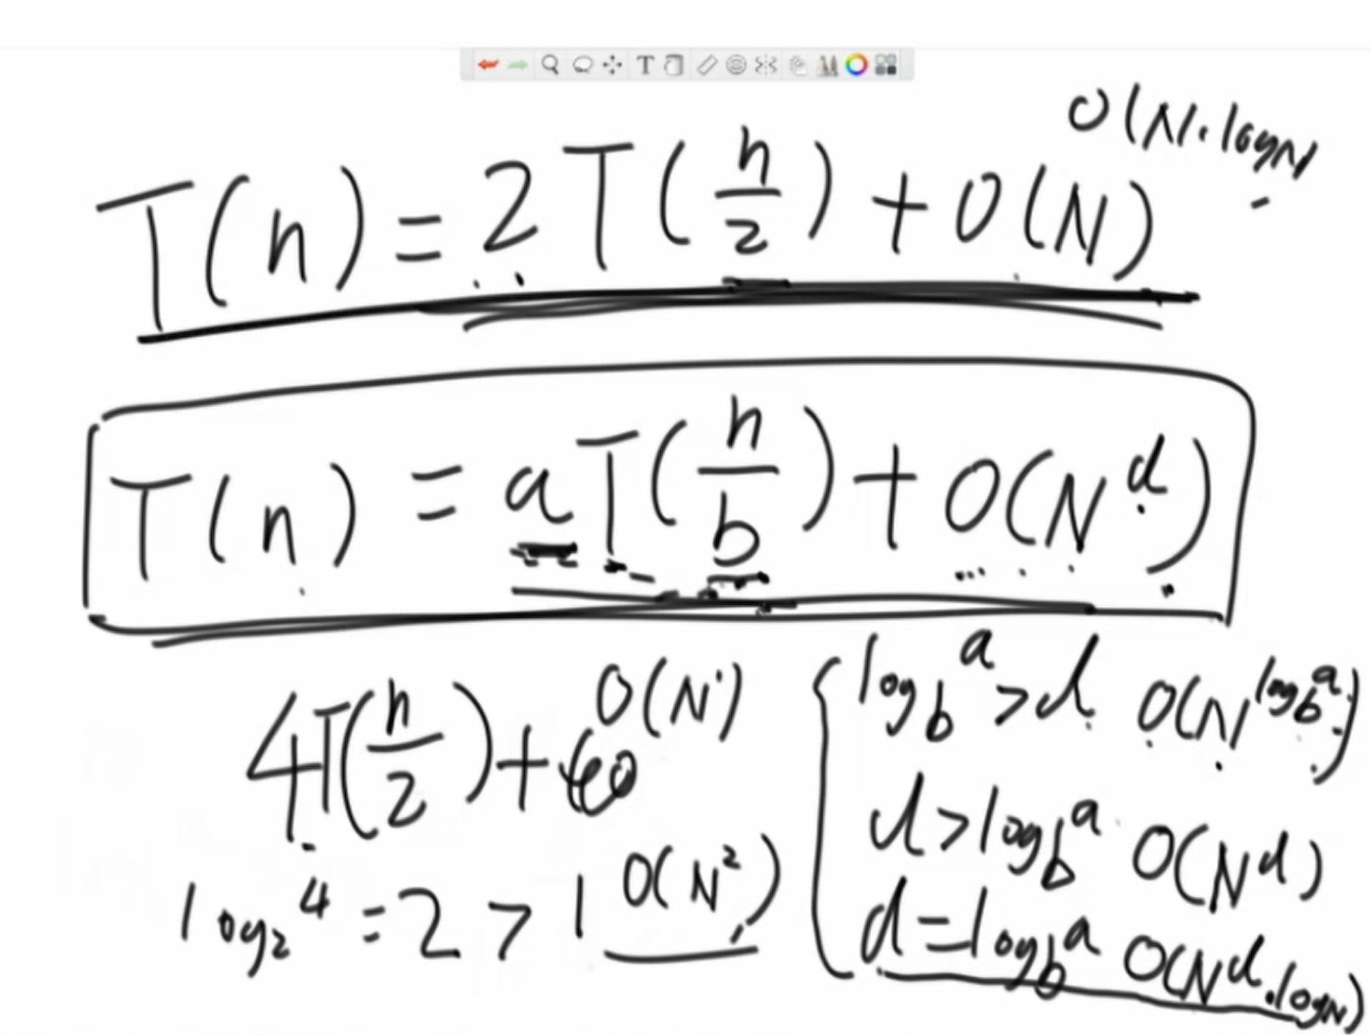 O(N·logN)
T(n) = 2T(n/2) + O(N)
T(n) = aT(n/b) + O(N^d)
4T(n/2) + O(N^1)
log_2^4 = 2 > 1 O(N^2)
log_b^a > d O(N^log_b^a)
d > log_b^a O(N^d)
d = log_b^a O(N^d·logN)